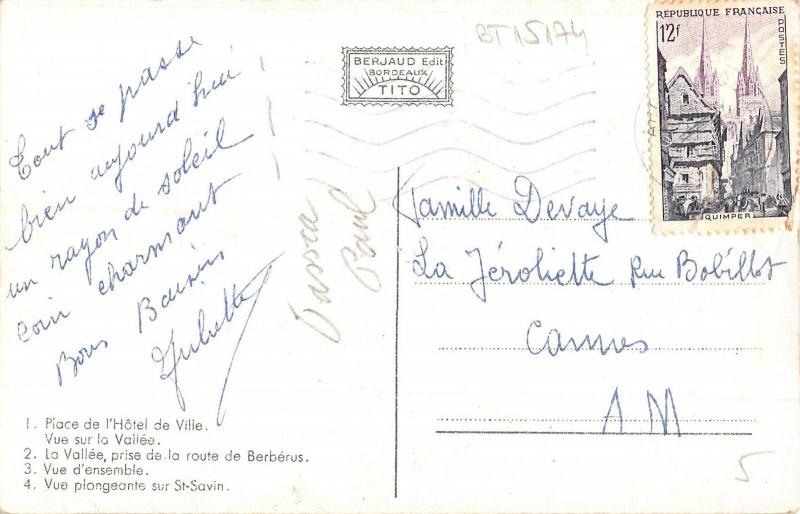 BT15174
RÉPUBLIQUE FRANÇAISE
12f
POSTES
QUIMPER
BERJAUD Edit
BORDEAUX
TITO
Tout se passe
bien aujourd'hui
un rayon de soleil
coin charmant
Bons Baisers
Juliette
Paul
Famille Devaye
La Jéroliette Rue Bobillot
Cannes
A M
1. Place de l'Hôtel de Ville.
Vue sur la Vallée.
2. La Vallée, prise de la route de Berbérus.
3. Vue d'ensemble.
4. Vue plongeante sur St-Savin.
5